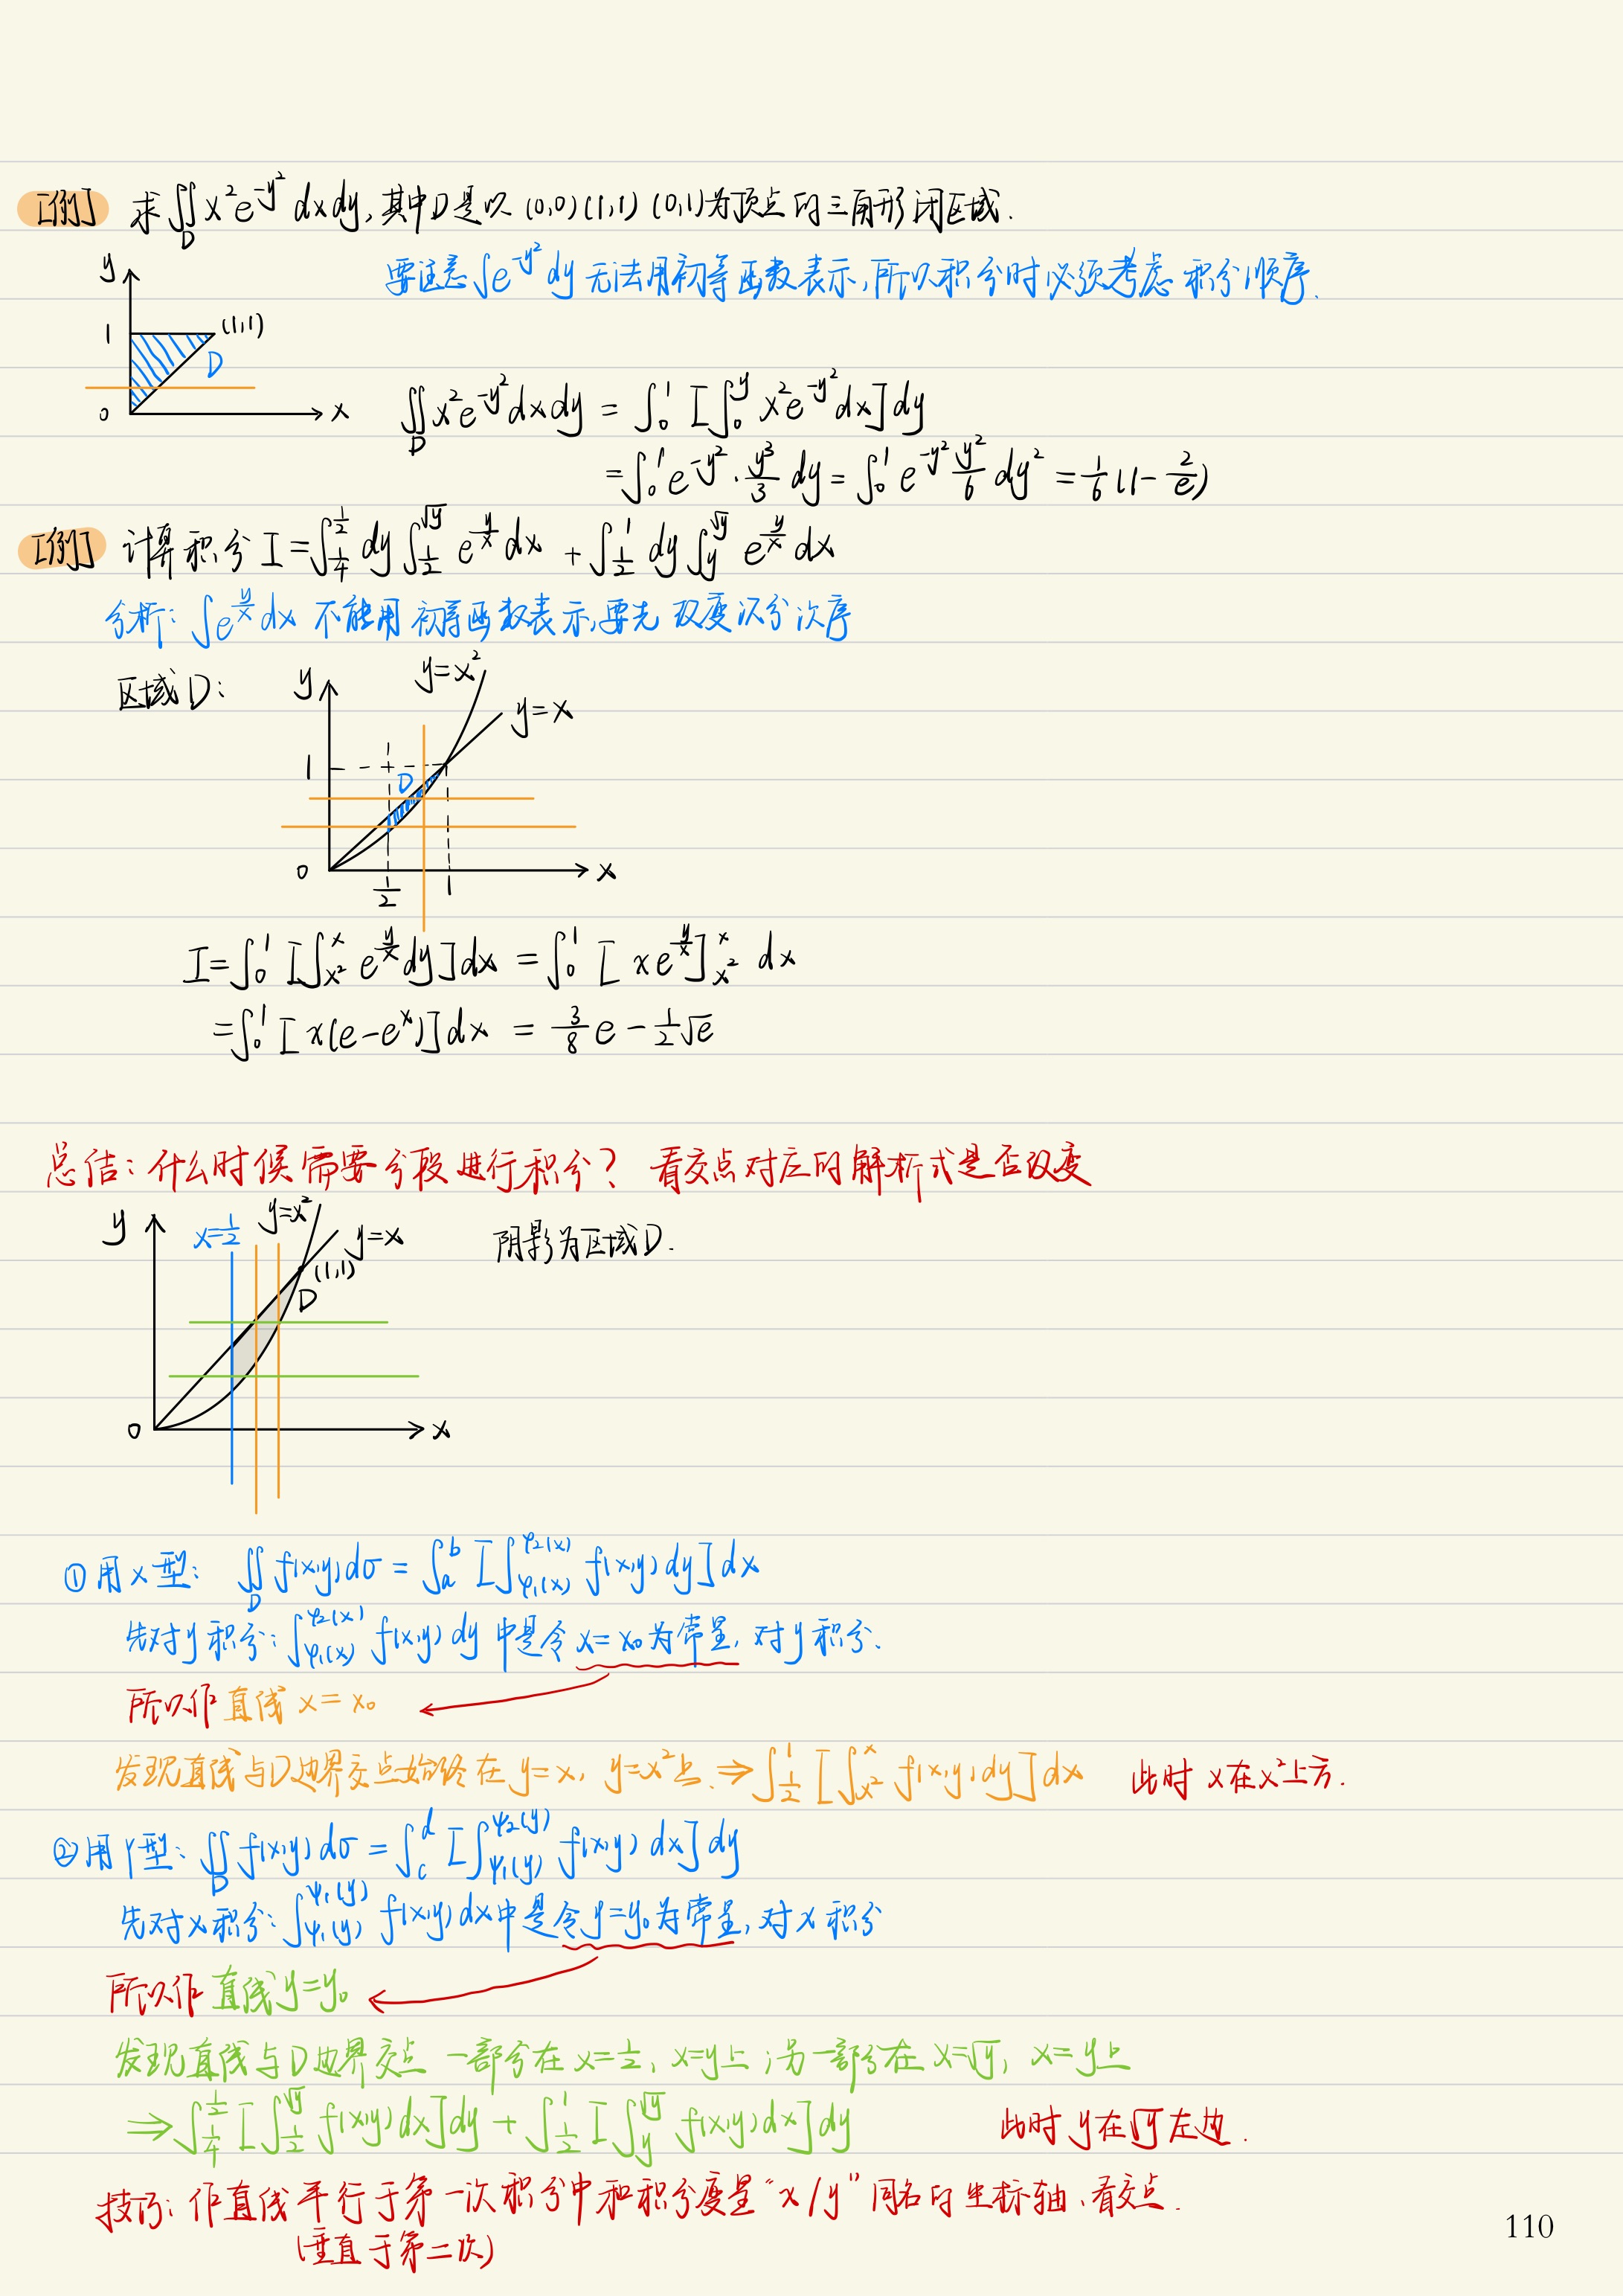 [例] 求∬_D x²e^{-y²}dxdy,其中D是以(0,0)(1,1)(0,1)为顶点的三角形闭区域.
要注意∫e^{-y²}dy无法用初等函数表示,所以积分时必须考虑积分顺序.
y
1
(1,1)
D
0
x
∬_D x²e^{-y²}dxdy = ∫_0^1 [∫_0^y x²e^{-y²}dx]dy
=∫_0^1 e^{-y²}·y³/3 dy = ∫_0^1 e^{-y²} y²/6 dy² = 1/6(1-2/e)
[例] 计算积分 I=∫_{1/4}^{1/2}dy∫_{1/2}^{√y} e^{y/x}dx + ∫_{1/2}^1 dy∫_y^{√y} e^{y/x}dx
分析: ∫e^{y/x}dx 不能用初等函数表示,要先改变次分次序
区域D:
y
y=x²
y=x
1
D
0
1/2
1
x
I=∫_0^1 [∫_{x²}^x e^{y/x}dy]dx = ∫_0^1 [xe^{y/x}]_{x²}^x dx
=∫_0^1 [x(e-e^x)]dx = 3/8 e - 1/2 √e
总结:什么时候需要分段进行积分? 看交点对应的解析式是否改变
y
x=1/2
y=x²
y=x
(1,1)
D
0
x
阴影为区域D.
①用X型: ∬_D f(x,y)dσ = ∫_a^b [∫_{φ₁(x)}^{φ₂(x)} f(x,y)dy]dx
先对y积分: ∫_{φ₁(x)}^{φ₂(x)} f(x,y)dy 中是令x=x₀为常量,对y积分.
所以作直线 x=x₀
发现直线与D边界交点始终在y=x, y=x²上.⇒∫_{1/2}^1 [∫_{x²}^x f(x,y)dy]dx 此时x在x²上方.
②用Y型: ∬_D f(x,y)dσ = ∫_c^d [∫_{ψ₁(y)}^{ψ₂(y)} f(x,y)dx]dy
先对x积分: ∫_{ψ₁(y)}^{ψ₁(y)} f(x,y)dx中是令y=y₀为常量,对x积分
所以作直线y=y₀
发现直线与D边界交点一部分在x=1/2, x=y上;另一部分在x=√y, x=y上
⇒∫_{1/4}^{1/2} [∫_{1/2}^{√y} f(x,y)dx]dy + ∫_{1/2}^1 [∫_y^{√y} f(x,y)dx]dy 此时y在√y左边.
技巧: 作直线平行于第一次积分中和积分变量“x/y”同名的坐标轴、看交点.
(垂直于第二次)
110